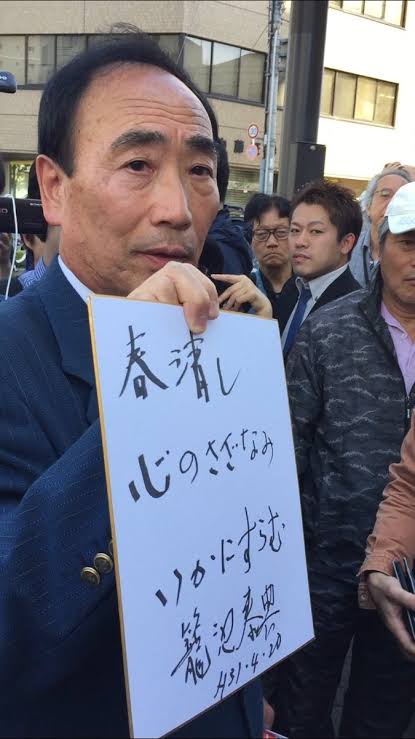 春清し
心のさざなみ
いかにすらむ
籠池泰典
H31.4.20